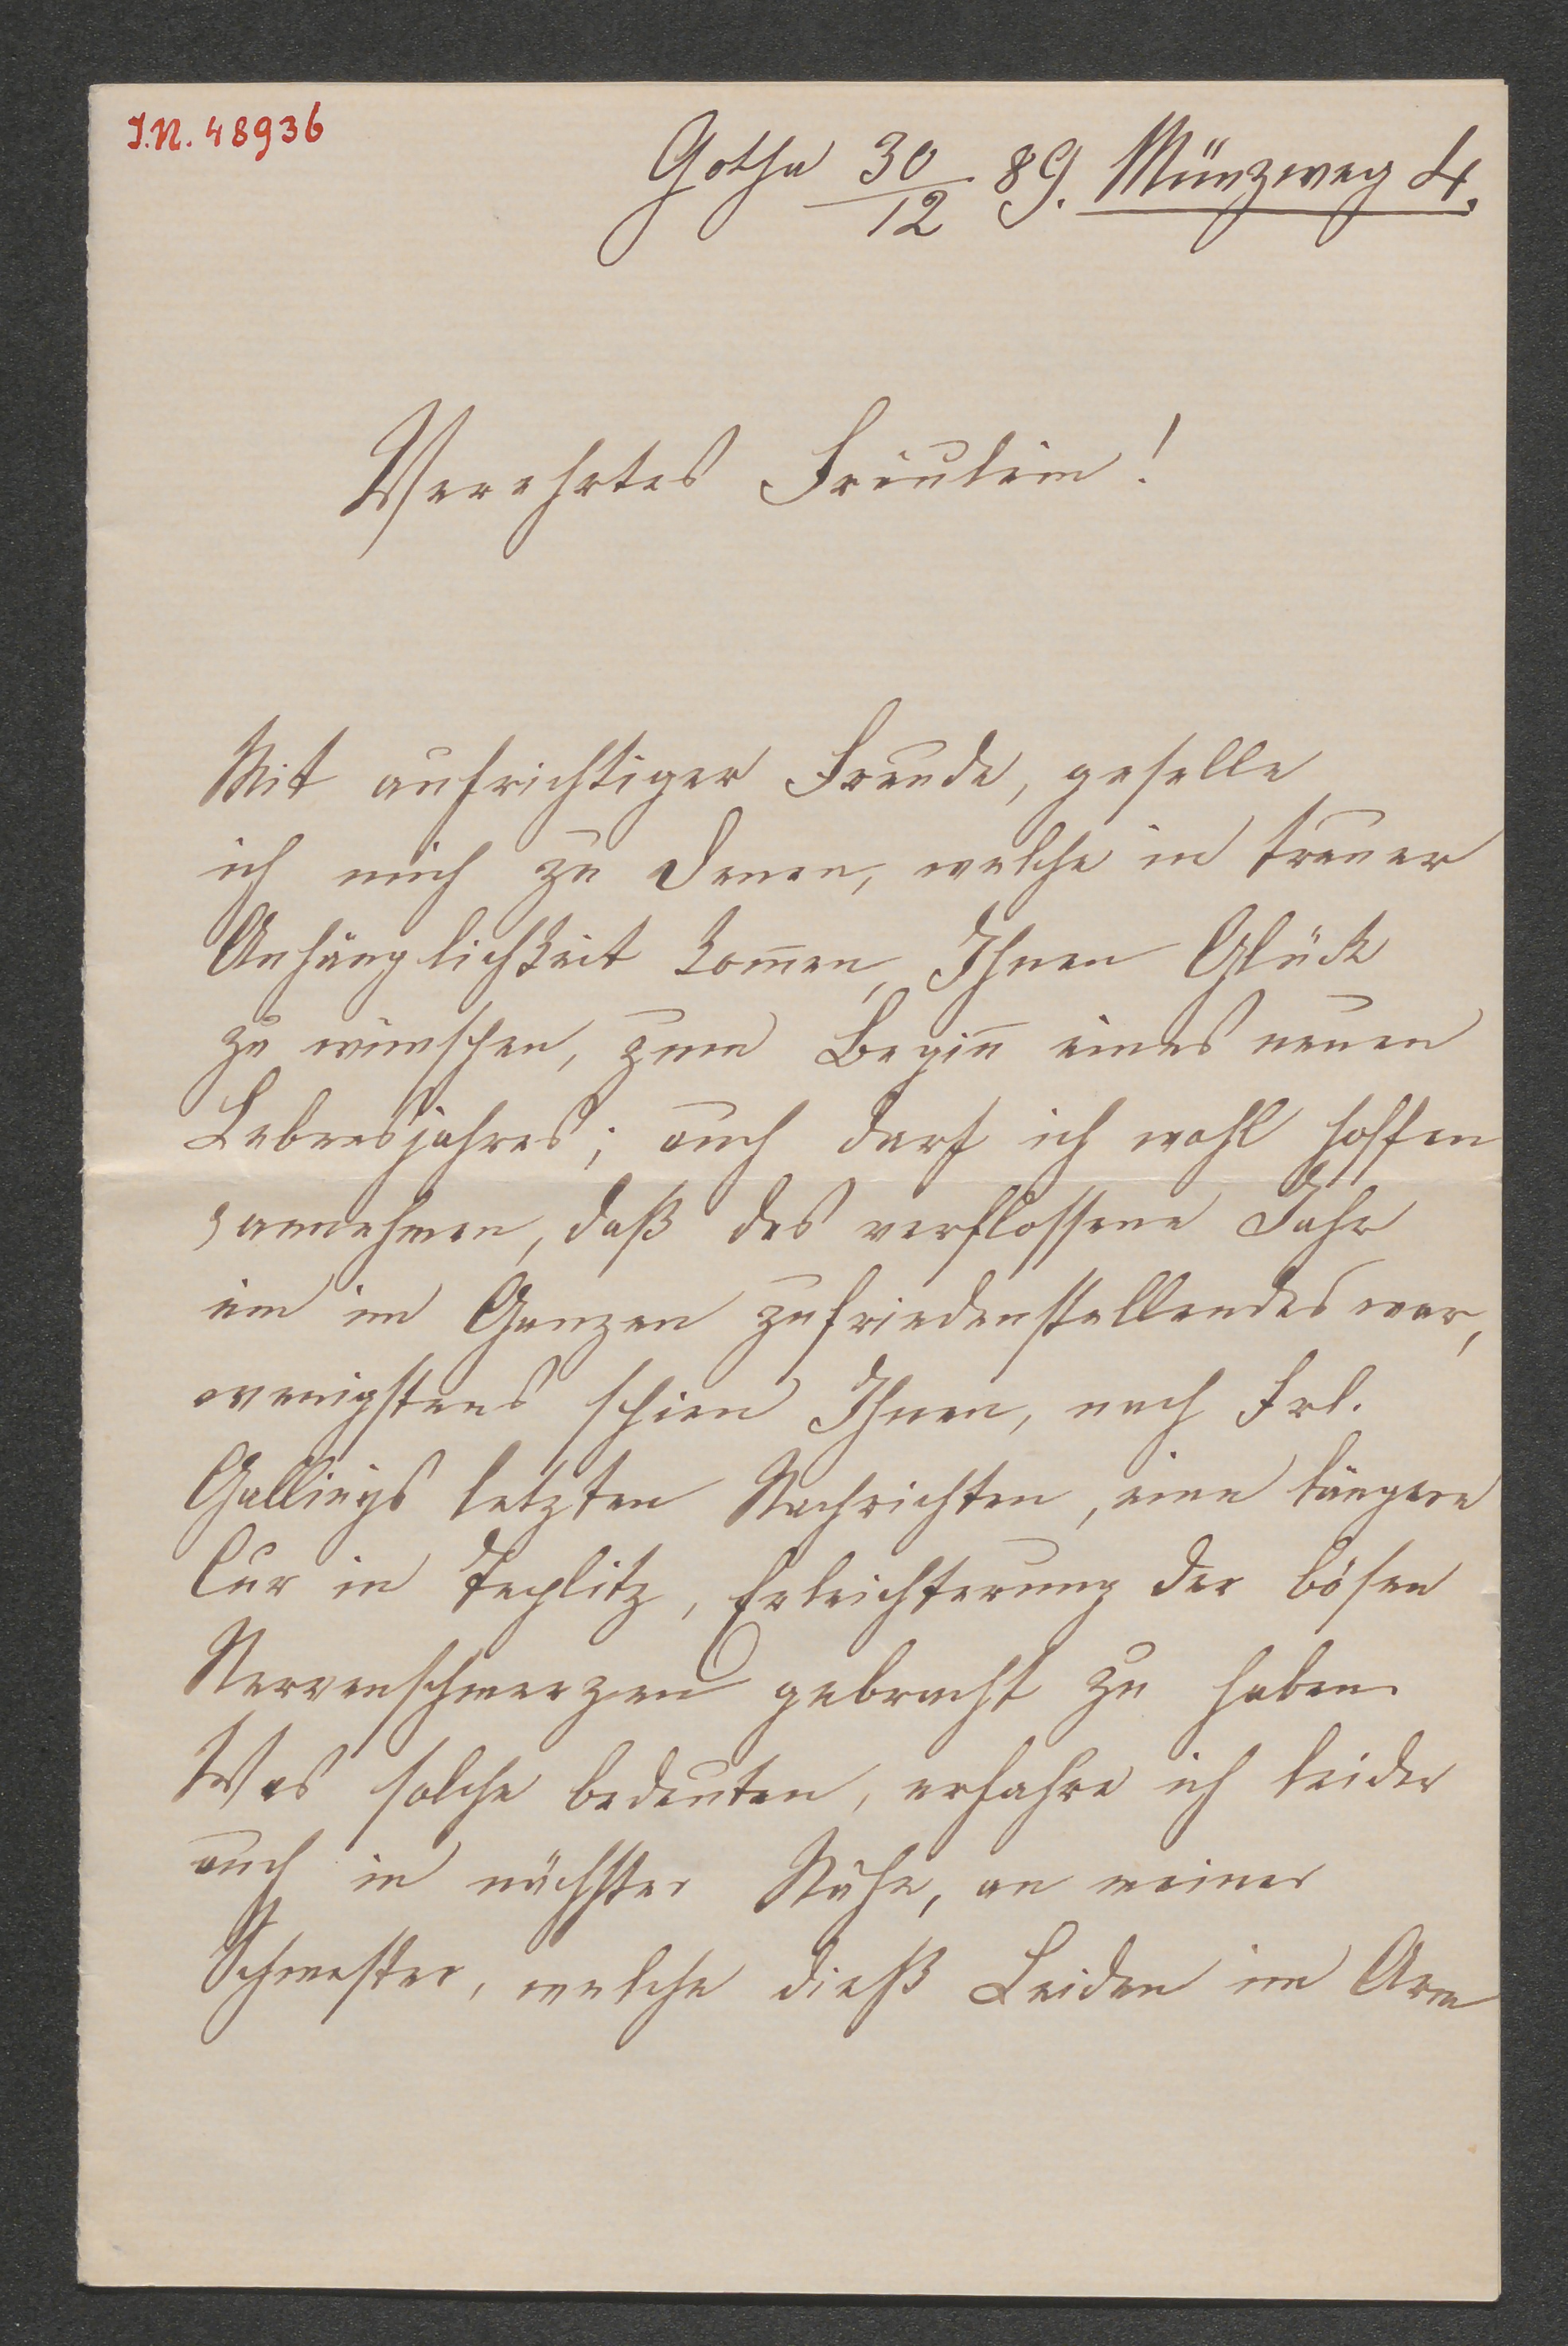 I.N. 48936
Gotha 30/12 89. Münzweg 4.
Verehrtes Fräulein!
Mit aufrichtiger Freude, geselle
ich mich zu denen, welche in treuer
Anhänglichkeit kom̅en, Ihnen Glück
zu wünschen, zum Begin̅ eines neuen
Lebensjahres; auch darf ich wohl hoffen
annehmen, daß das verflossene Jahr
ein im Ganzen zufriedenstellendes war,
wenigstens schien Ihnen, nach Frl.
letzten Nachrichten, eine längere
Cur in Teplitz, Erleichterung der bösen
Nervenschmerzen gebracht zu haben.
Was solche bedeuten, erfahre ich leider
auch in nächster Nähe, an meiner
Schwester, welche dieß Leiden im Arm